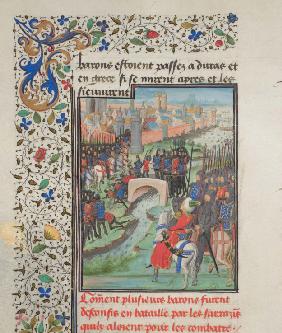 barons estoient passez a duras et
en grece si se mirent apres et les
sieuuirent
Coment plusieurs barons furent
desconfis en bataille par les sarrazins
quilz aloient pour les combatre